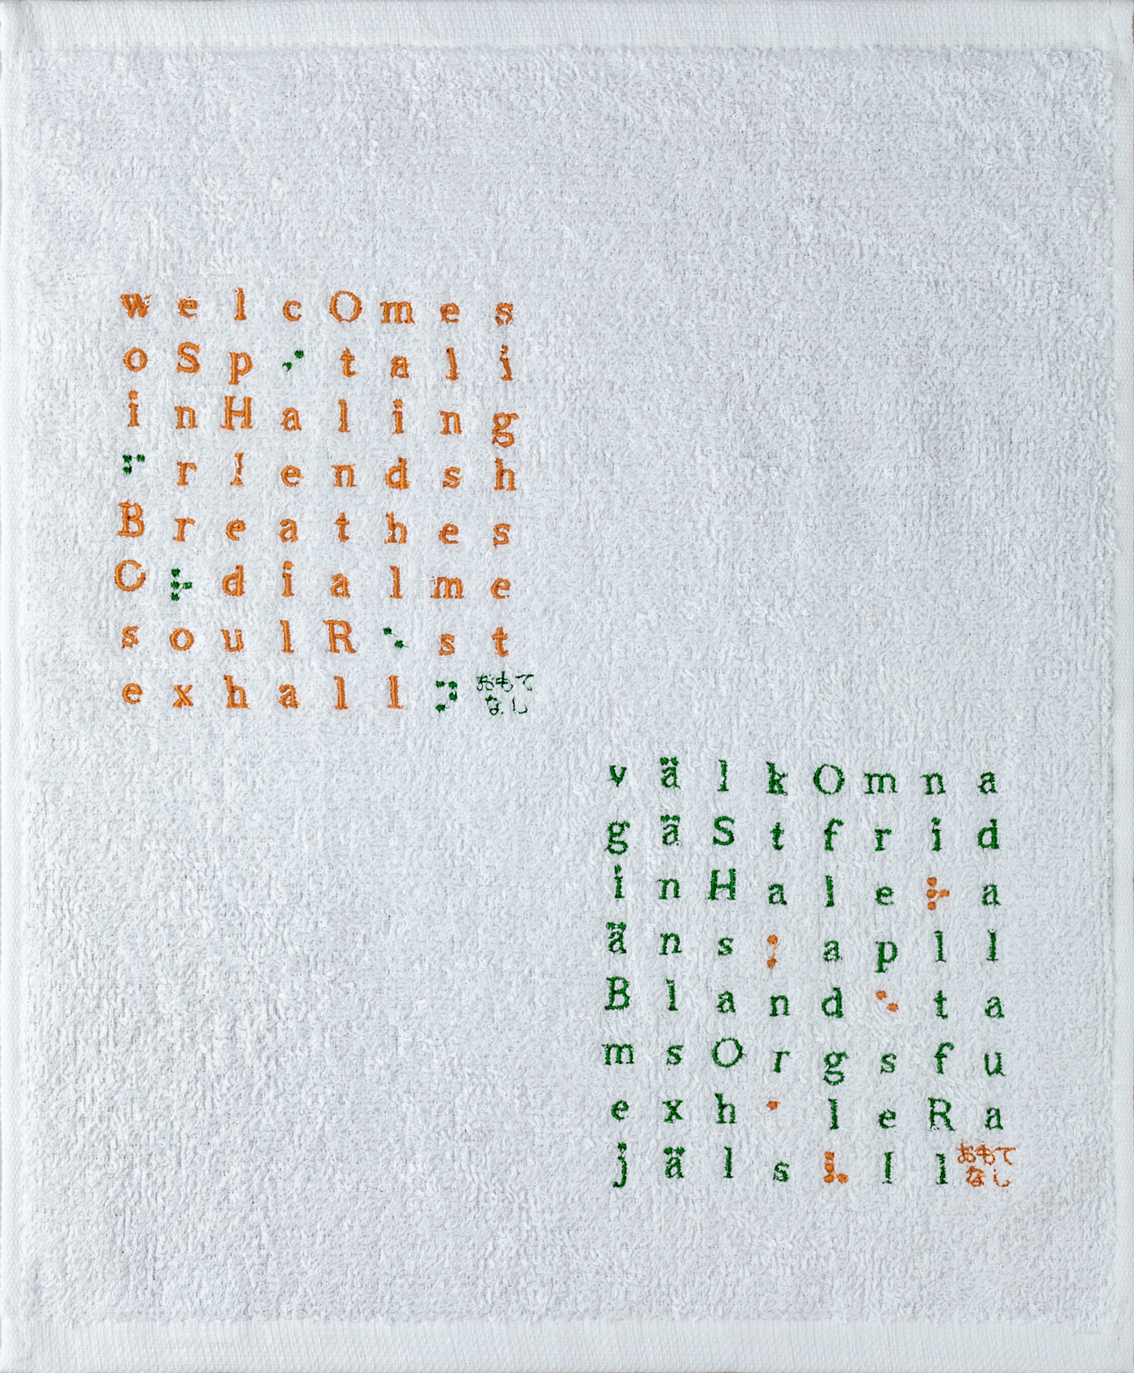 w e l c O m e s
o S p ⠊ t a l i
i n H a l i n g
⠋ r ! e n d s h
B r e a t h e s
C ⠗ d i a l m e
s o u l R ⠑ s t
e x h a l l ⠝ おもてなし
v ä l k O m n a
g ä S t f r i d
i n H a l e ⠗ a
ä n s ⠅ a p l l
B l a n d ⠑ t a
m s O r g s f u
e x h ⠁ l e R a
j ä l s ⠧ ! l おもてなし